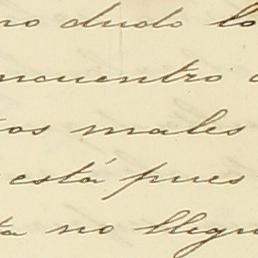 no dudo lo
ncuentro
os males
está pues
ta no llegu